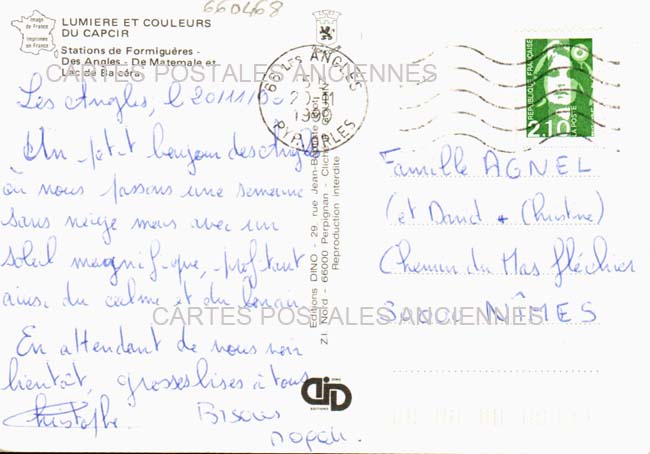 660468
Image de France
Imprimée en France
LUMIERE ET COULEURS
DU CAPCIR
Stations de Formiguères -
Des Angles - De Matemale et
Lac de Balcéra
CARTES POSTALES ANCIENNES
66 LES ANGLES
PYR. ORLES
REPUBLIQUE FRANÇAISE
LA POSTE
2,10
Les Angles, le 20/11/
Un petit bonjour des Angles
où nous passons une semaine
sans neige mais avec un
soleil magnifique, profitant
ainsi du calme et du terrain
En attendant de vous voir
bientôt, grosses bises à tous
Christophe.
Bisous
Editions DINO - 29, rue Jean-Baptiste
Z.I. Nord - 66000 Perpignan - Cliché
Reproduction interdite
DINO
EDITIONS
Famille AGNEL
(et David + Christine)
Chemin du Mas fléchier
NÎMES
CARTES POSTALES ANCIENNES